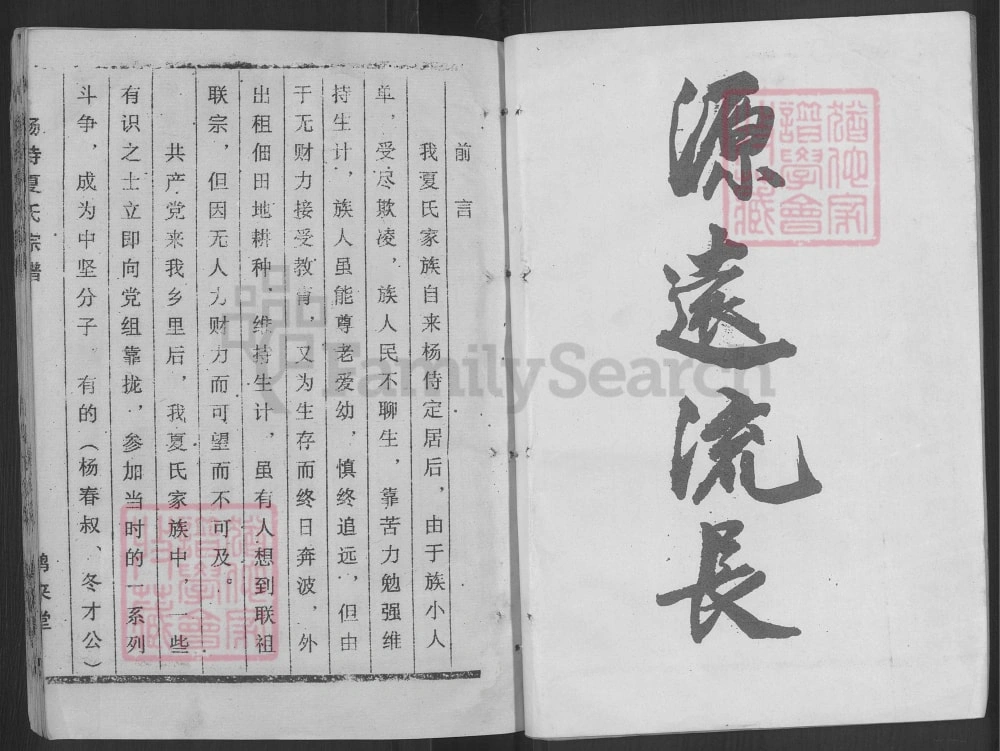 源遠流長
前言
我夏氏家族自来杨侍定居后，由于族小人
单，受尽欺凌，族人民不聊生，靠苦力勉强维
持生计，族人虽能尊老爱幼，慎终追远，但由
于无财力接受教育，又为生存而终日奔波，外
出租佃田地耕种，维持生计，虽有人想到联祖
联宗，但因无人力财力而可望而不可及。
共产党来我乡里后，我夏氏家族中，一些
有识之士立即向党组靠拢，参加当时的一系列
斗争，成为中坚分子。有的（杨春叔、冬才公）
杨侍夏氏宗谱
来堂
譜學會
藏
譜學會
藏
FamilySearch